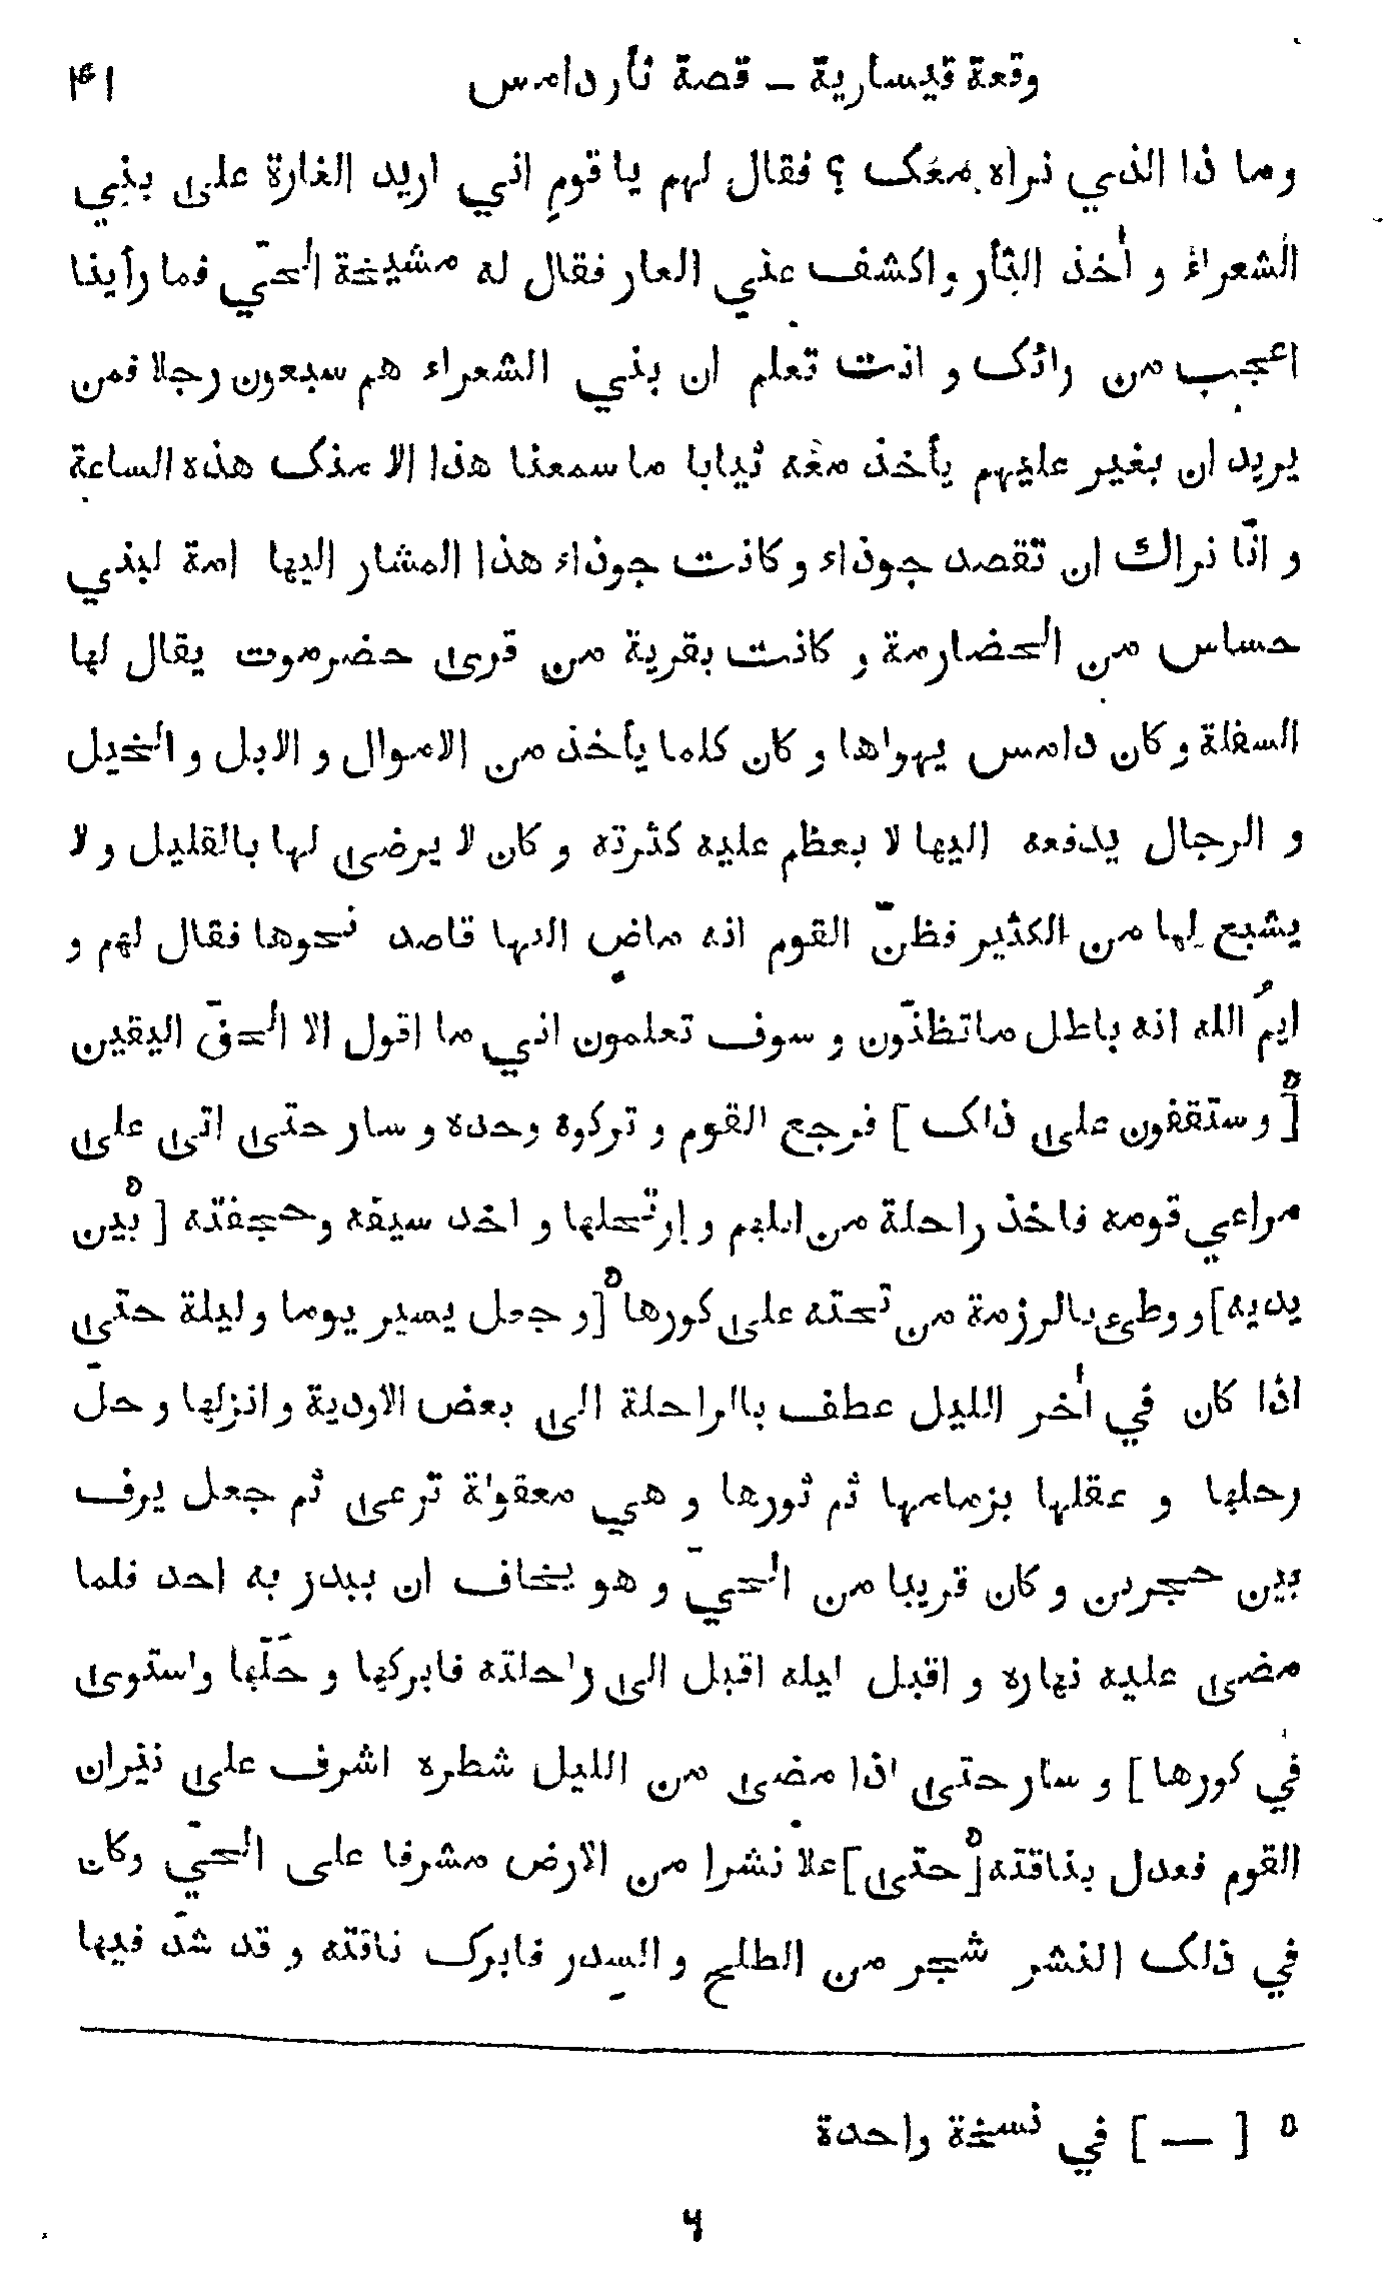 وقعة قيسارية – قصة ثأر دامس ۴۱
وما ذا الذي نراه معك ؟ فقال لهم يا قومِ اني اريد الغارة على بني
الشعراء و أخذ الثأر واكشف عني العار فقال له مشيخة الحيّ فما رأينا
اعجب من رائك و انت تعلم ان بني الشعراء هم سبعون رجلا فمن
يريد ان بغير عليهم يأخذ معه ثيابا ما سمعنا هذا الا منك هذه الساعة
و انّا نراك ان تقصد جوذاء و كانت جوذاء هذا المشار اليها امة لبني
حساس من الحضارمة و كانت بقرية من قرى حضرموت يقال لها
السفلة و كان دامس يهواها و كان كلما يأخذ من الاموال و الابل و الخيل
و الرجال يدفعه اليها لا بعظم عليه كثرته و كان لا يرضى لها بالقليل و لا
يشبع لها من الكثير فظنّ القوم انه ماضٍ اليها قاصد نحوها فقال لهم و
ايمُ الله انه باطل ماتظنّون و سوف تعلمون اني ما اقول الا الحقّ اليقين
[ ٥ و ستقفون على ذاك ] فرجع القوم و تركوه وحده و سار حتى اتى على
مراعي قومه فاخذ راحلة من ابلهم و إرتحلها و اخذ سيفه وحجفته [ ٥ بين
يديه] و وطئ بالرزمة من تحته على كورها ٥ [و جعل يسير يوما وليلة حتى
اذا كان في أخر الليل عطف بالراحلة الى بعض الاودية و انزلها و حلّ
رحلها و عقلها بزمامها ثم ثورها و هي معقولة ترعى ثم جعل يرف
بين حجرين و كان قريبا من الحيّ و هو يخاف ان ببدر به احد فلما
مضى عليه نهاره و اقبل ليله اقبل الى راحلته فابركها و حَلّها واستوى
في كورها ] و سار حتى اذا مضى من الليل شطره اشرف على نيران
القوم فعدل بناقته ٥ [حتى] علا نشرا من الارض مشرفا على الحيّ وكان
في ذلك النشر شجر من الطلح و السدر فابرك ناقته و قد شدّ فيها
٥ [ — ] في نسخة واحدة
۶